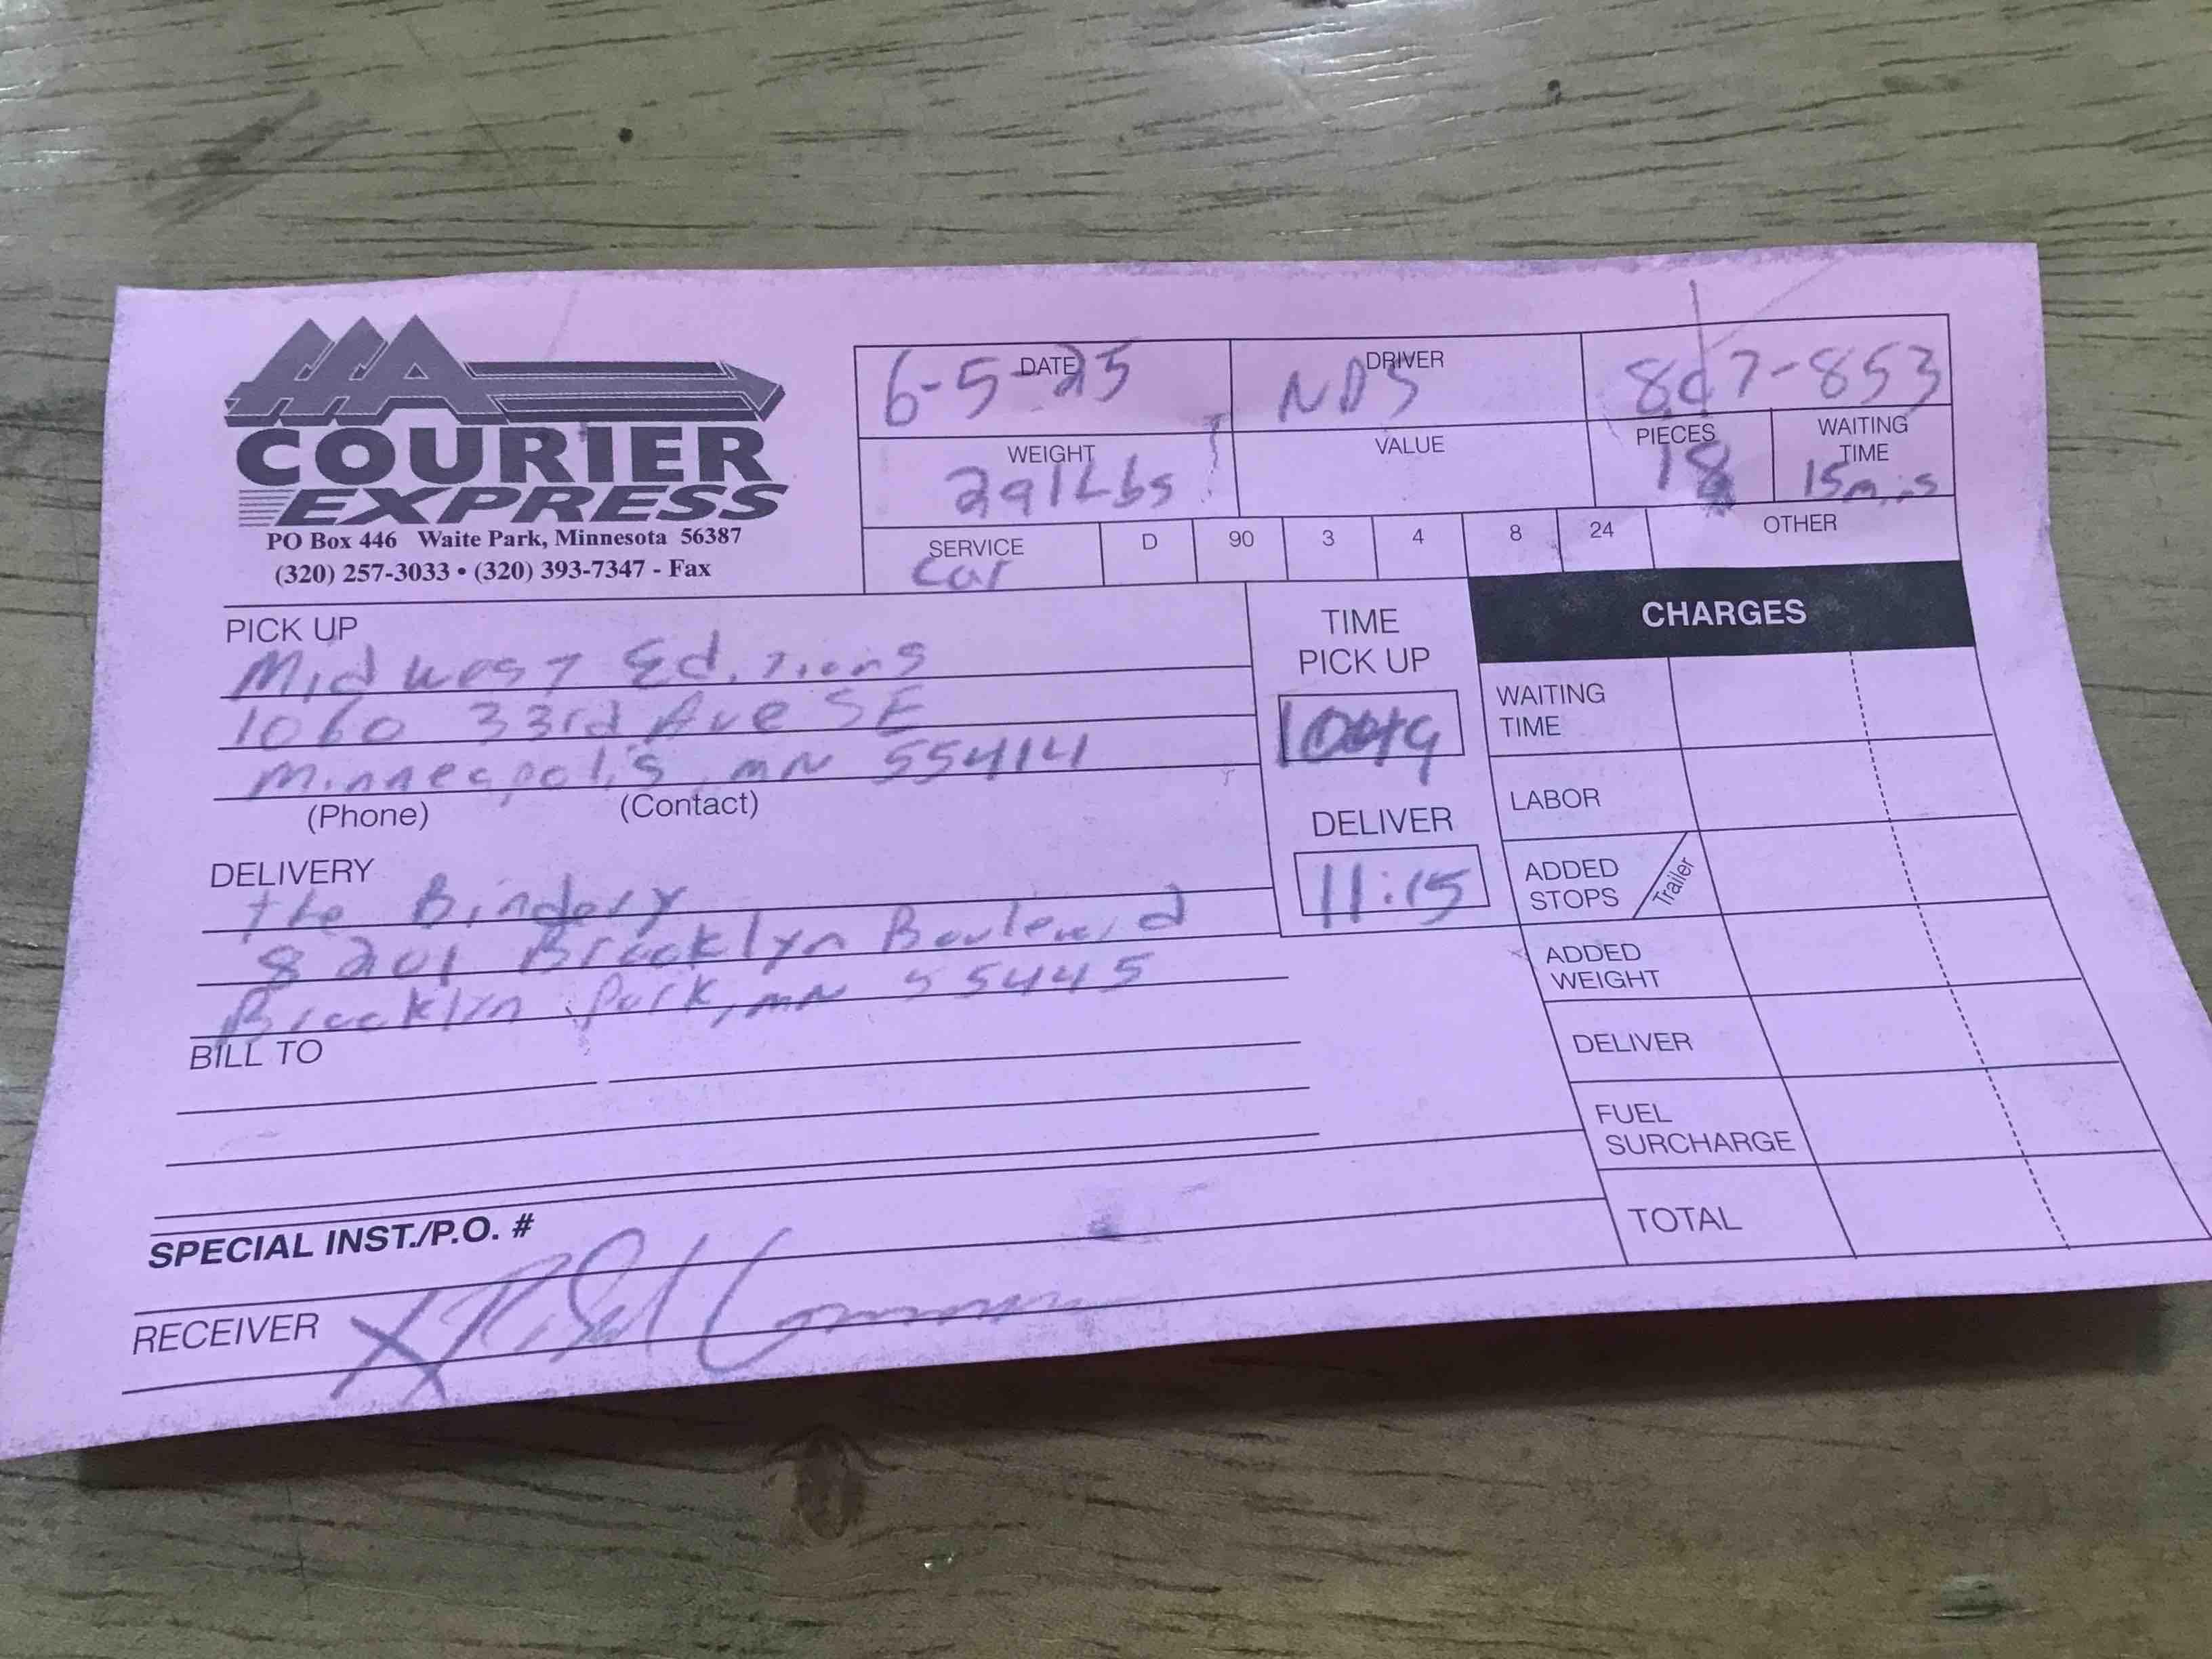 AAA
COURIER
EXPRESS
PO Box 446 Waite Park, Minnesota 56387
(320) 257-3033 • (320) 393-7347 - Fax
DATE
6-5-25
DRIVER
NDS
-853
WEIGHT
291 Lbs
VALUE
PIECES
18
WAITING
TIME
15mins
SERVICE
Car
D
90
3
4
8
24
OTHER
PICK UP
Midwest Editions
1060 33rd Ave SE
Minneapolis, MN 55414
(Phone) (Contact)
TIME
PICK UP
DELIVERY
the Bindery
8201 Brooklyn Boulevard
Brooklyn Park, MN 55445
DELIVER
11:15
BILL TO
SPECIAL INST./P.O. #
RECEIVER X
CHARGES
WAITING
TIME
LABOR
ADDED
STOPS Trailer
ADDED
WEIGHT
DELIVER
FUEL
SURCHARGE
TOTAL